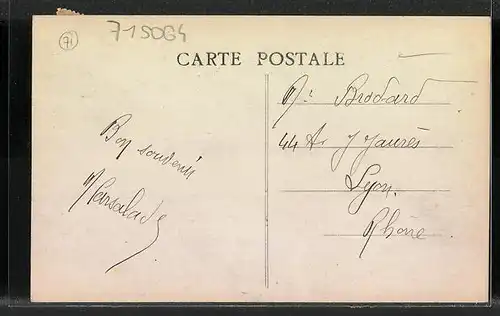 71
71SOG4
CARTE POSTALE
Mr Brodard
44 Av J Jaurès
Lyon
Rhône
Bon souvenir
Marsalade